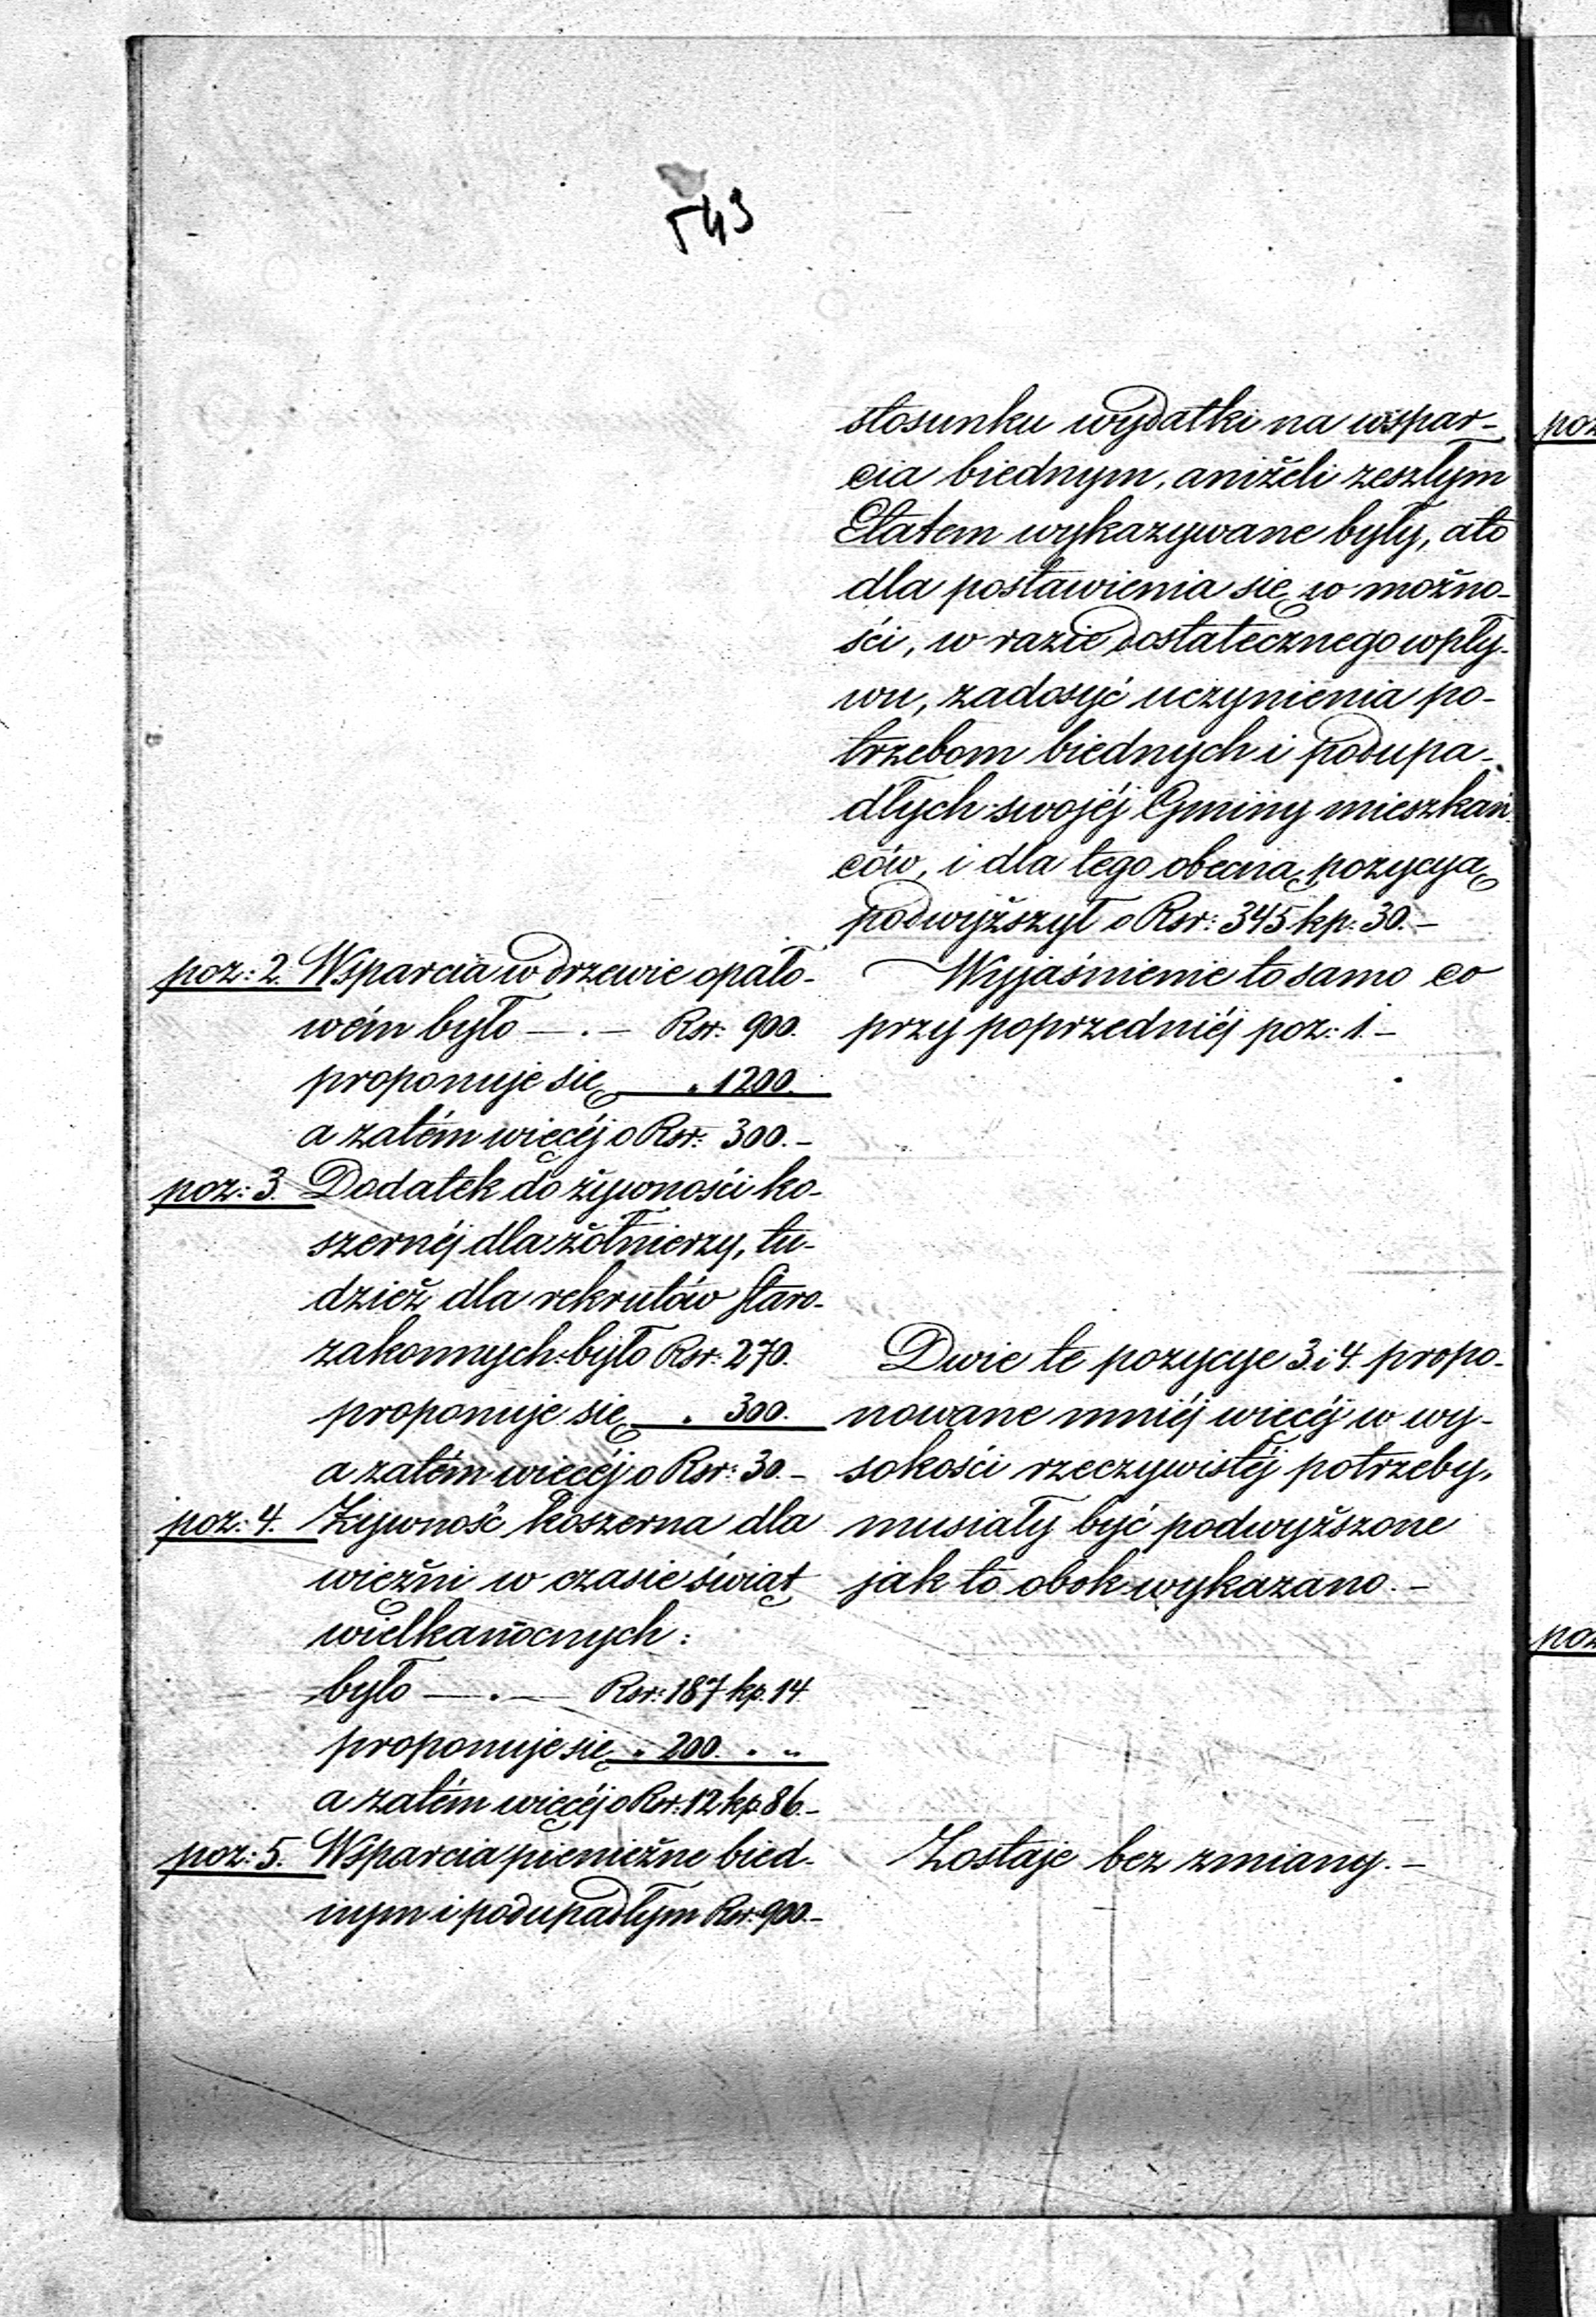 543
stosunku wydatki na wspar-
cia biednym, aniżeli zeszłym
Etatem wykazywane były, a to
dla postawienia się w możno-
ści, w razie dostatecznego wpły-
wu, zadosyć uczynienia po-
trzebom biednych i podupa-
dłych swojéj Gminy mieszkań-
ców, i dla tego obecną pozycyą
podwyższył o Rsr: 345 kp: 30.-
poz: 2. Wsparcia w drzewie opało-
wém było — . — Rsr: 900.
proponuje się „ 1200.
a zatém więcéj o Rsr: 300.-
Wyjaśnienie to samo co
przy poprzedniéj poz: 1.-
poz: 3. Dodatek do żywności ko-
szernéj dla żołnierzy, tu-
dzież dla rekrutów Staro-
zakonnych: było Rsr: 270.
proponuje się „ 300.
a zatém więcéj o Rsr: 30.-
poz: 4. Żywność koszerna dla
więźni w czasie świąt
wielkanocnych:
było — . — Rsr: 187 kp. 14.
proponuje się „ 200. „ „
a zatém więcéj o Rsr: 12 kp. 86.-
Dwie te pozycye 3. i 4. propo-
nowane mniéj więcéj w wy-
sokości rzeczywistéj potrzeby,
musiały być podwyższone
jak to obok wykazano.-
poz: 5. Wsparcia pieniężne bied-
nym i podupadłym Rsr: 900.-
Zostaje bez zmiany.-
poz
poz